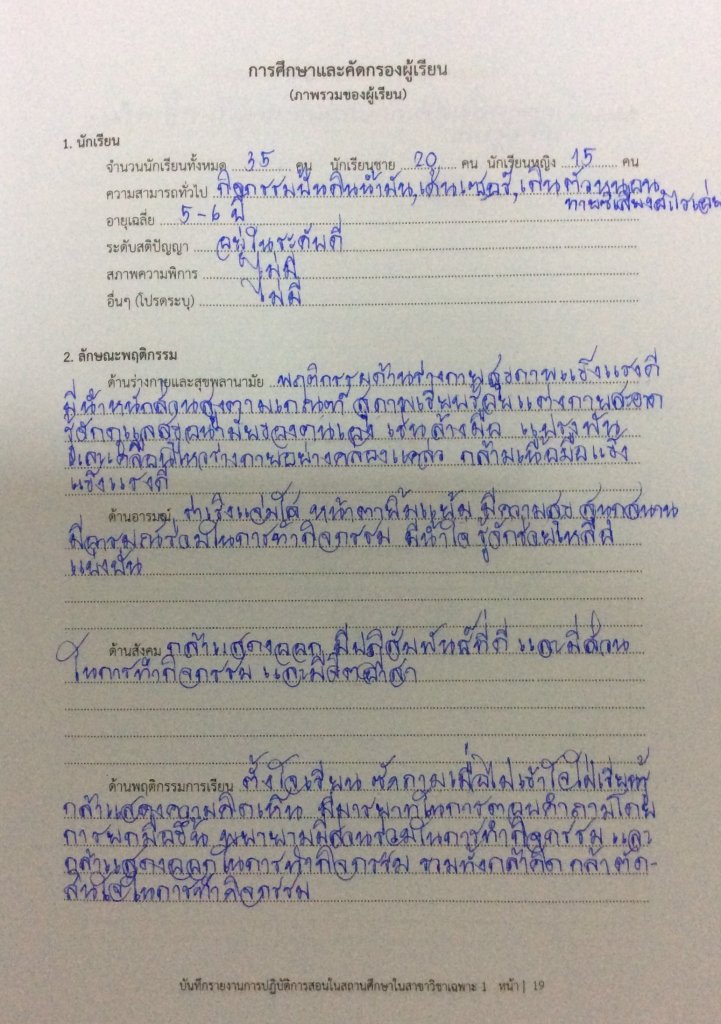 การศึกษาและคัดกรองผู้เรียน
(ภาพรวมของผู้เรียน)
1. นักเรียน
จำนวนนักเรียนทั้งหมด 35 คน นักเรียนชาย 20 คน นักเรียนหญิง 15 คน
ความสามารถทั่วไป กิจกรรมปั้นดินน้ำมัน, เต้น
อายุเฉลี่ย 5-6 ปี
ระดับสติปัญญา อยู่ในระดับดี
สภาพความพิการ ไม่มี
อื่นๆ (โปรดระบุ) ไม่มี
2. ลักษณะพฤติกรรม
ด้านร่างกายและสุขพลานามัย พฤติกรรมด้านร่างกายสุขภาพแข็งแรงดี
มีน้ำหนักส่วนสูงตามเกณฑ์ สุภาพเรียบร้อยแต่งกายสะอาด
รู้จักดูแลสุขอนามัยของตนเอง เช่นล้างมือ แปรงฟัน
และเคลื่อนไหวร่างกายอย่างคล่องแคล่ว กล้ามเนื้อมือแข็ง
แข็งแรงดี
ด้านอารมณ์ ร่าเริงแจ่มใส หน้าตายิ้มแย้ม มีความสุข สนุกสนาน
มีอารมณ์ร่วมในการทำกิจกรรม มีน้ำใจ รู้จักช่วยเหลือ
แบ่งปัน
ด้านสังคม กล้าแสดงออก มีปฏิสัมพันธ์ที่ดี และมีส่วน
ในการทำกิจกรรม และมีจิตอาสา
ด้านพฤติกรรมการเรียน ตั้งใจเรียน ซักถามเมื่อไม่เข้าใจ ใฝ่เรียนรู้
กล้าแสดงความคิดเห็น มีมารยาทในการตอบคำถามโดย
การยกมือขึ้น พยายามมีส่วนร่วมในการทำกิจกรรม และ
กล้าแสดงออกในการทำกิจกรรม รวมทั้งกล้าคิด กล้าตัด-
สินใจในการทำกิจกรรม
บันทึกรายงานการปฏิบัติการสอนในสถานศึกษาในสาขาวิชาเฉพาะ 1 หน้า | 19